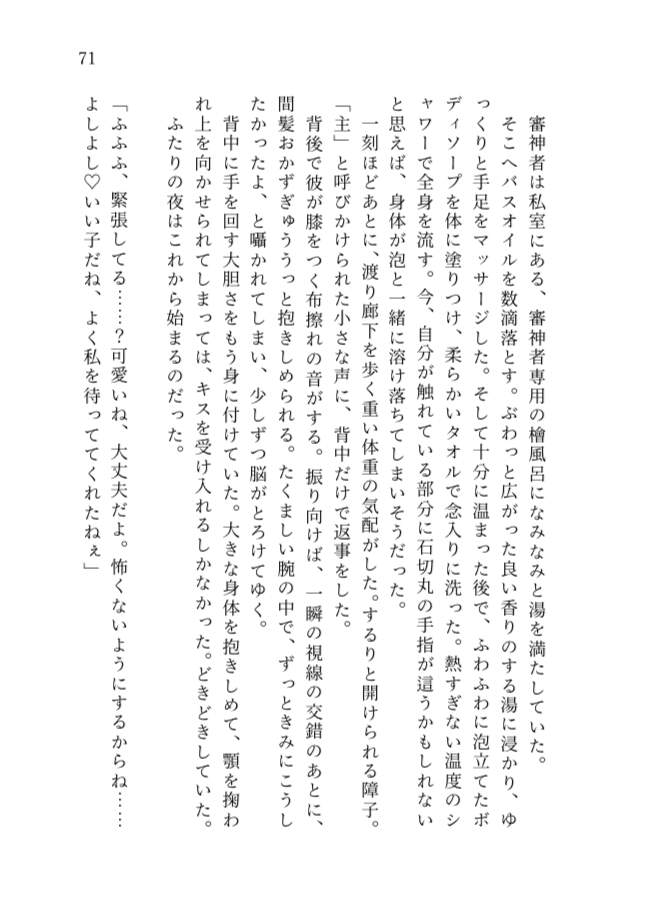 71
審神者は私室にある、審神者専用の檜風呂になみなみと湯を満たしていた。
そこへバスオイルを数滴落とす。ぶわっと広がった良い香りのする湯に浸かり、ゆ
っくりと手足をマッサージした。そして十分に温まった後で、ふわふわに泡立てたボ
ディソープを体に塗りつけ、柔らかいタオルで念入りに洗った。熱すぎない温度のシ
ャワーで全身を流す。今、自分が触れている部分に石切丸の手指が這うかもしれない
と思えば、身体が泡と一緒に溶け落ちてしまいそうだった。
一刻ほどあとに、渡り廊下を歩く重い体重の気配がした。するりと開けられる障子。
「主」と呼びかけられた小さな声に、背中だけで返事をした。
背後で彼が膝をつく布擦れの音がする。振り向けば、一瞬の視線の交錯のあとに、
間髪おかずぎゅううっと抱きしめられる。たくましい腕の中で、ずっときみにこうし
たかったよ、と囁かれてしまい、少しずつ脳がとろけてゆく。
背中に手を回す大胆さをもう身に付けていた。大きな身体を抱きしめて、顎を掬わ
れ上を向かせられてしまっては、キスを受け入れるしかなかった。どきどきしていた。
ふたりの夜はこれから始まるのだった。
「ふふふ、緊張してる……？可愛いね、大丈夫だよ。怖くないようにするからね……
よしよし♡いい子だね、よく私を待っててくれたねぇ」